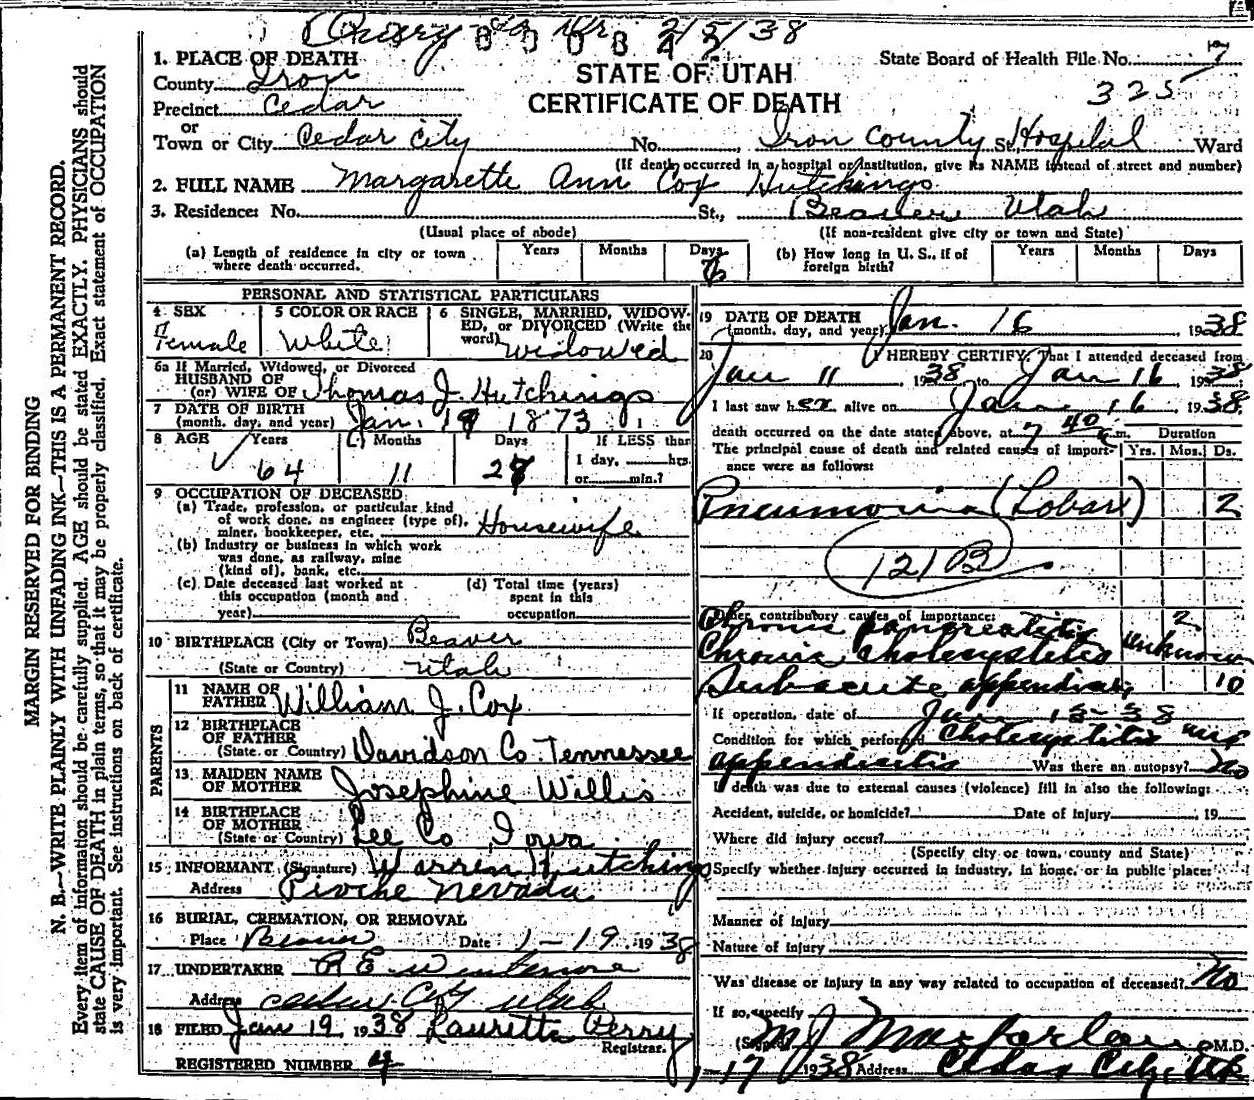 Query 2/5/38
1. PLACE OF DEATH
County Iron
Precinct Cedar
or
Town or City Cedar City
STATE OF UTAH
CERTIFICATE OF DEATH
State Board of Health File No. 7
325
No. Iron County St. Hospital Ward
(If death occurred in a hospital or institution, give its NAME instead of street and number)
2. FULL NAME Margarette Ann Cox Hutchings
3. Residence: No. St., Beaver Utah
(Usual place of abode) (If non-resident give city or town and State)
(a) Length of residence in city or town where death occurred. Years Months Days 6
(b) How long in U. S., if of foreign birth? Years Months Days
PERSONAL AND STATISTICAL PARTICULARS
4 SEX Female
5 COLOR OR RACE White
6 SINGLE, MARRIED, WIDOWED, or DIVORCED (Write the word) Widowed
6a If Married, Widowed, or Divorced
HUSBAND OF
(or) WIFE OF Thomas J. Hutchings
7 DATE OF BIRTH
(month, day, and year) Jan. 19 1873
8 AGE Years 64 Months 11 Days 27 If LESS than 1 day, hrs. or min.?
9 OCCUPATION OF DECEASED
(a) Trade, profession, or particular kind of work done, as engineer (type of), miner, bookkeeper, etc. Housewife
(b) Industry or business in which work was done, as railway, mine (kind of), bank, etc.
(c) Date deceased last worked at this occupation (month and year)
(d) Total time (years) spent in this occupation
10 BIRTHPLACE (City or Town) Beaver
(State or Country) Utah
PARENTS
11 NAME OF FATHER William J. Cox
12 BIRTHPLACE OF FATHER
(State or Country) Davidson Co. Tennessee
13. MAIDEN NAME OF MOTHER Josephine Willis
14 BIRTHPLACE OF MOTHER
(State or Country) Lee Co. Iowa
15 INFORMANT (Signature) Warren Hutchings
Address Pioche Nevada
16 BURIAL, CREMATION, OR REMOVAL
Place Beaver Date 1-19 1938
17 UNDERTAKER
Address Cedar City Utah
18 FILED Jan 19 1938 Lauretta Perry
Registrar.
REGISTERED NUMBER 4
19 DATE OF DEATH
(month, day, and year) Jan. 16 1938
20 I HEREBY CERTIFY, That I attended deceased from
Jan 11 1938 to Jan 16 1938
I last saw her alive on Jan 16 1938
death occurred on the date stated above, at 7 40 m. Duration
The principal cause of death and related causes of importance were as follows: Yrs. Mos. Ds.
Pneumonia (Lobar) 2
121 B
Other contributory causes of importance:
Chronic pancreatitis 2
Chronic cholecystitis unknown
Subacute 10
If operation, date of Jan 13-38
Condition for which performed Cholecystitis and
appendicitis Was there an autopsy? No
If death was due to external causes (violence) fill in also the following:
Accident, suicide, or homicide? Date of injury 19
Where did injury occur?
(Specify city or town, county and State)
Specify whether injury occurred in industry, in home, or in public place:
Manner of Injury
Nature of Injury
Was disease or injury in any way related to occupation of deceased? No
If so, specify
(Signed) M J Macfarlane M.D.
1-17 1938 Address Cedar City, Ut.
MARGIN RESERVED FOR BINDING
N. B.—WRITE PLAINLY WITH UNFADING INK—THIS IS A PERMANENT RECORD.
Every item of information should be carefully supplied. AGE should be stated EXACTLY. PHYSICIANS should
state CAUSE OF DEATH in plain terms, so that it may be properly classified. Exact statement of OCCUPATION
is very important. See instructions on back of certificate.